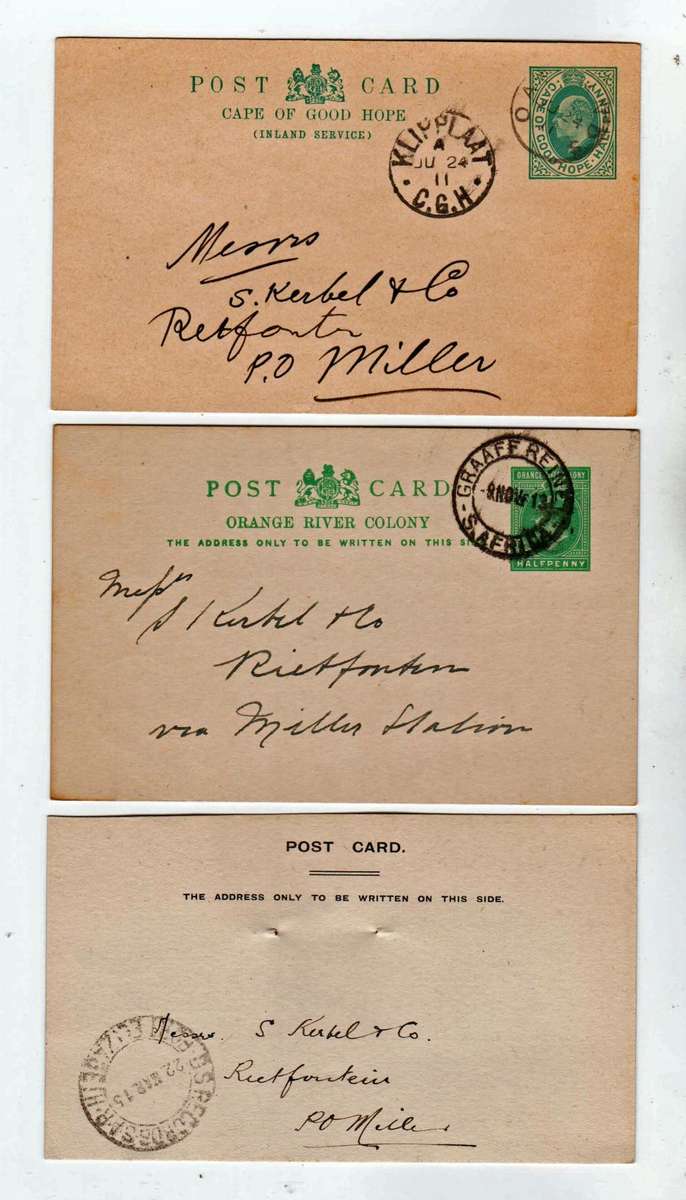 POST CARD
CAPE OF GOOD HOPE
(INLAND SERVICE)
CAPE OF GOOD HOPE · HALFPENNY
KLIPPLAAT
A
JU 24
11
C.G.H
Messrs
S. Kerbel & Co
Retfontn
P.O Miller
POST CARD
ORANGE RIVER COLONY
THE ADDRESS ONLY TO BE WRITTEN ON THIS SI
GRAAFF REINE
NOV 13
S. AFRICA
HALFPENNY
Messrs
S Kerbel & Co
Rietfontein
via Miller Station
POST CARD.
THE ADDRESS ONLY TO BE WRITTEN ON THIS SIDE.
22 MAR 15
Messrs. S Kerbel & Co.
Rietfontein
PO Miller